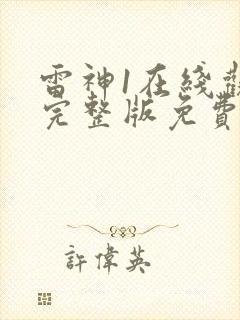 雷神1在綫觀
完整版免費
許偉英